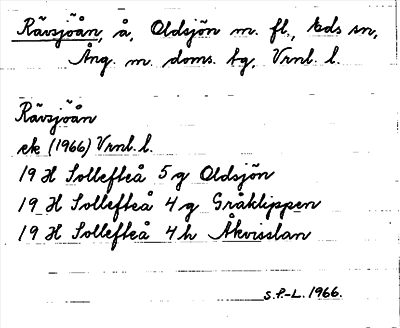 Rävsjöån, å, Oldsjön m. fl., Eds sn,
Ång. m. doms. tg, Vrnl. l.
Rävsjöån
ek (1966) Vrnl. l.
19 H Sollefteå 5 g Oldsjön
19 H Sollefteå 4 g Gråklippen
19 H Sollefteå 4 h Åkvisslan
S.P.-L. 1966.